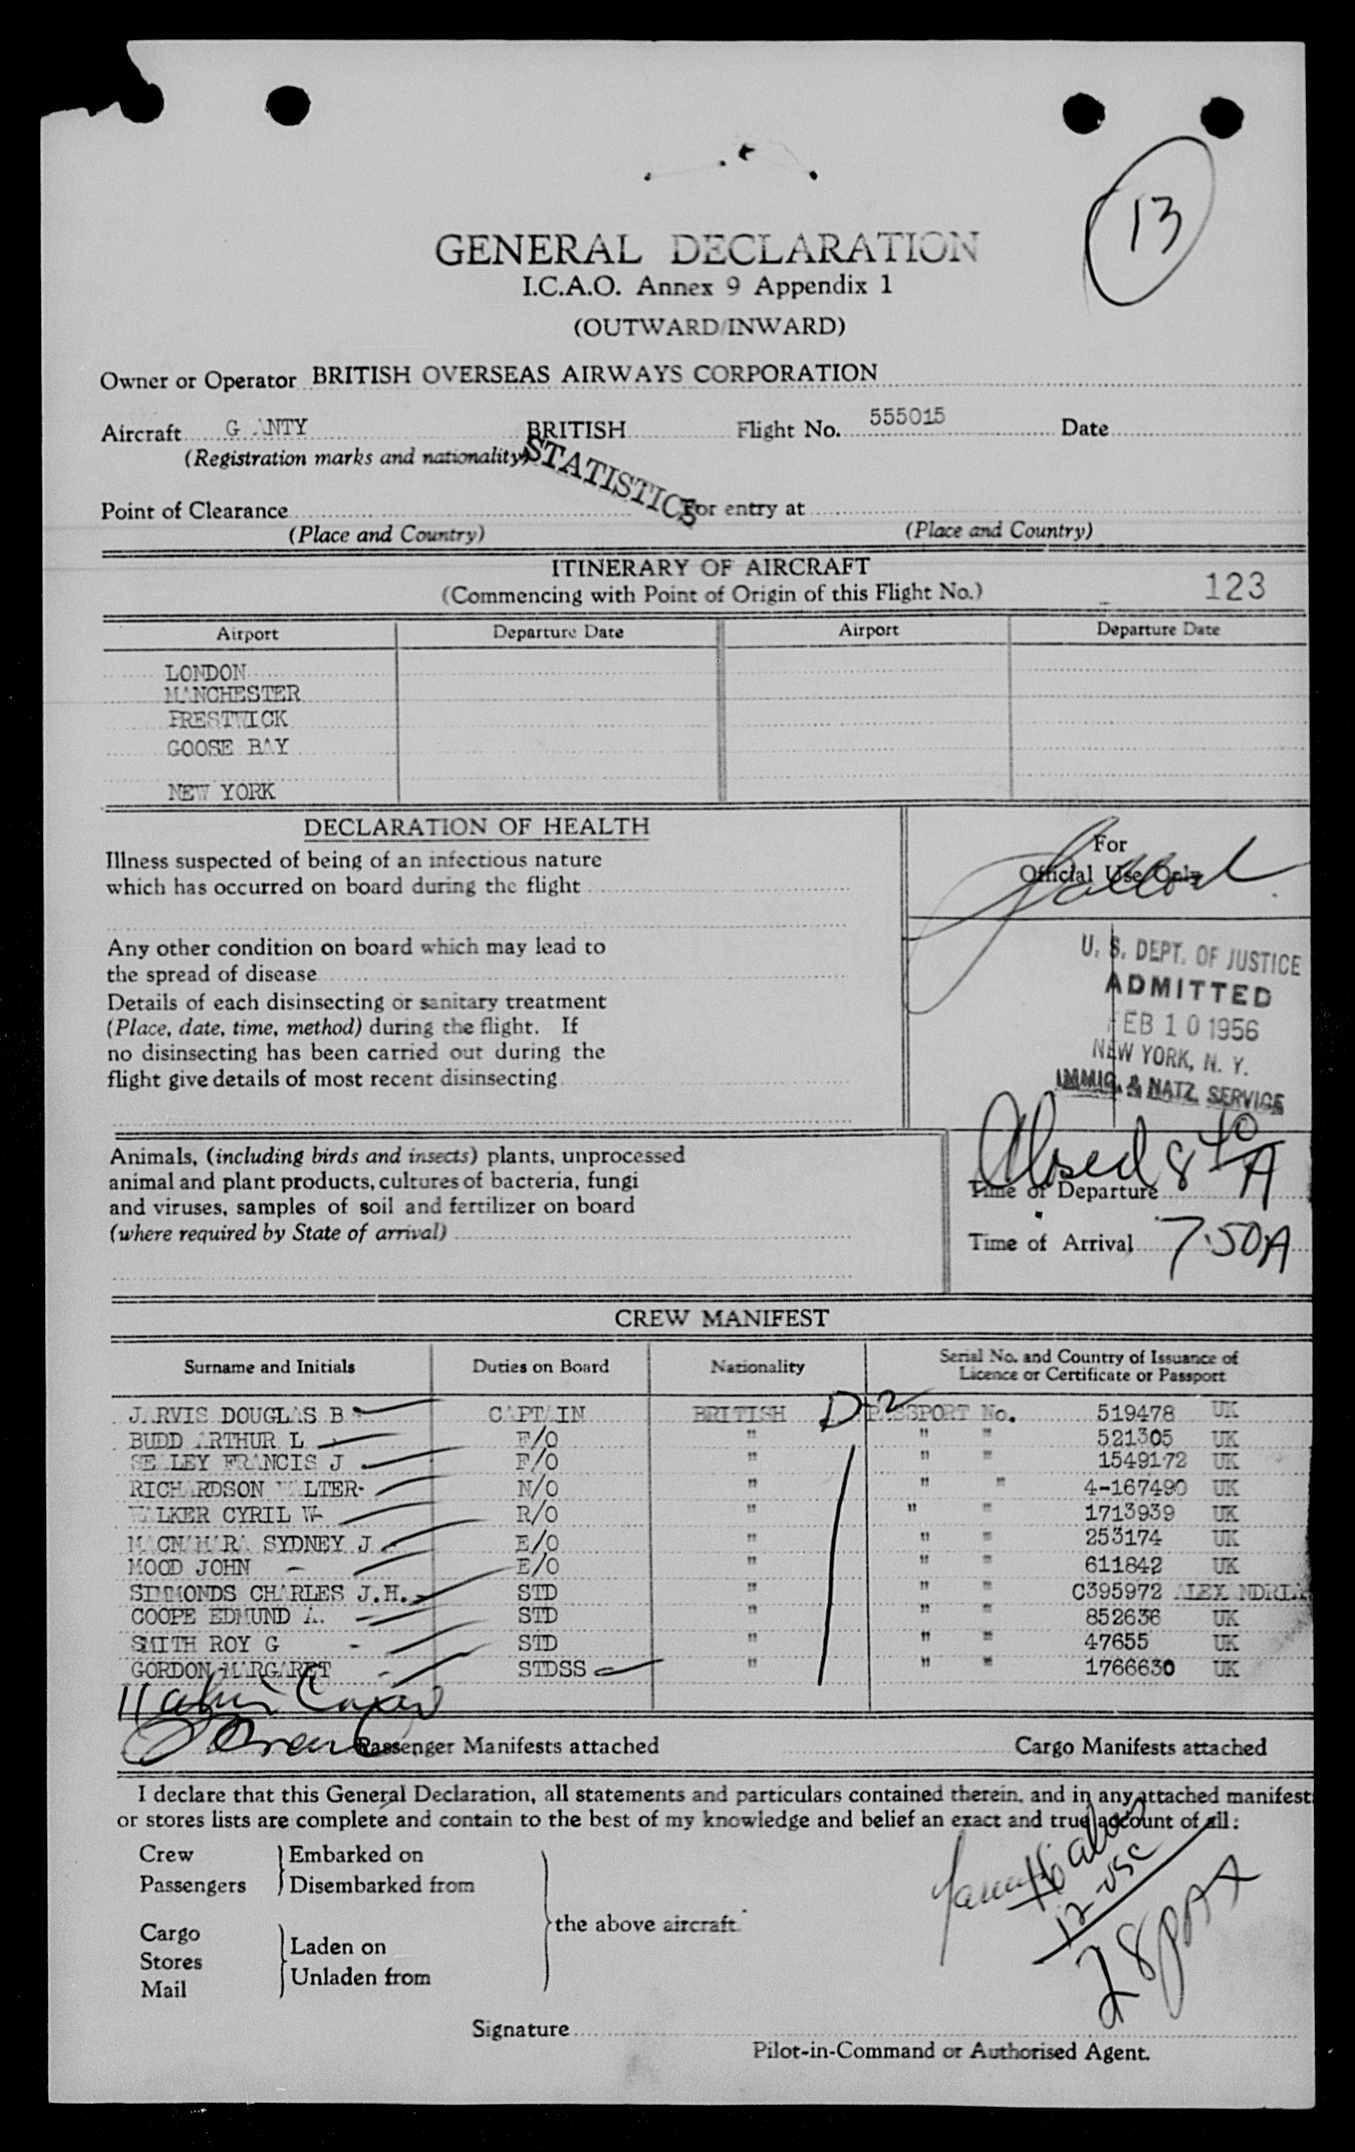 13
GENERAL DECLARATION
I.C.A.O. Annex 9 Appendix 1
(OUTWARD/INWARD)
Owner or Operator BRITISH OVERSEAS AIRWAYS CORPORATION
Aircraft G ANTY BRITISH Flight No. 555015 Date
(Registration marks and nationality)
STATISTICS
Point of Clearance For entry at
(Place and Country) (Place and Country)
ITINERARY OF AIRCRAFT
(Commencing with Point of Origin of this Flight No.) 123
Airport Departure Date Airport Departure Date
LONDON
MANCHESTER
PRESTWICK
GOOSE BAY
NEW YORK
DECLARATION OF HEALTH
Illness suspected of being of an infectious nature
which has occurred on board during the flight
Any other condition on board which may lead to
the spread of disease
Details of each disinsecting or sanitary treatment
(Place, date, time, method) during the flight. If
no disinsecting has been carried out during the
flight give details of most recent disinsecting
For
Official Use Only
U. S. DEPT. OF JUSTICE
ADMITTED
FEB 10 1956
NEW YORK, N. Y.
IMMIG. & NATZ. SERVICE
Animals, (including birds and insects) plants, unprocessed
animal and plant products, cultures of bacteria, fungi
and viruses, samples of soil and fertilizer on board
(where required by State of arrival)
Closed 8 40 A
Time of Departure
Time of Arrival 7.50A
CREW MANIFEST
Surname and Initials Duties on Board Nationality Serial No. and Country of Issuance of
Licence or Certificate or Passport
JARVIS DOUGLAS B CAPTAIN BRITISH D-2 PASSPORT No. 519478 UK
BUDD ARTHUR L F/O " " " 521305 UK
SEALEY FRANCIS J F/O " " " 1549172 UK
RICHARDSON WALTER N/O " " " 4-167490 UK
WALKER CYRIL W R/O " " " 1713939 UK
MACNAMARA SYDNEY J E/O " " " 253174 UK
MOOD JOHN E/O " " " 611842 UK
SIMMONDS CHARLES J.H. STD " " " C395972 ALEXANDRIA
COOPE EDMUND A. STD " " " 852636 UK
SMITH ROY G STD " " " 47655 UK
GORDON MARGARET STDSS " " " 1766630 UK
11
Passenger Manifests attached Cargo Manifests attached
I declare that this General Declaration, all statements and particulars contained therein, and in any attached manifest
or stores lists are complete and contain to the best of my knowledge and belief an exact and true account of all:
Crew Embarked on
Passengers Disembarked from
the above aircraft.
Cargo Laden on
Stores Unladen from
Mail
16 alien
12 USC
28 PAX
Signature
Pilot-in-Command or Authorised Agent.